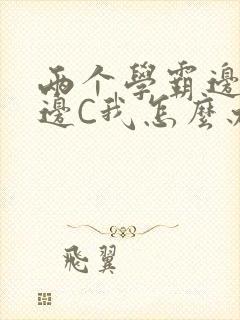 两个學霸邊
邊C我怎麼
飛翼